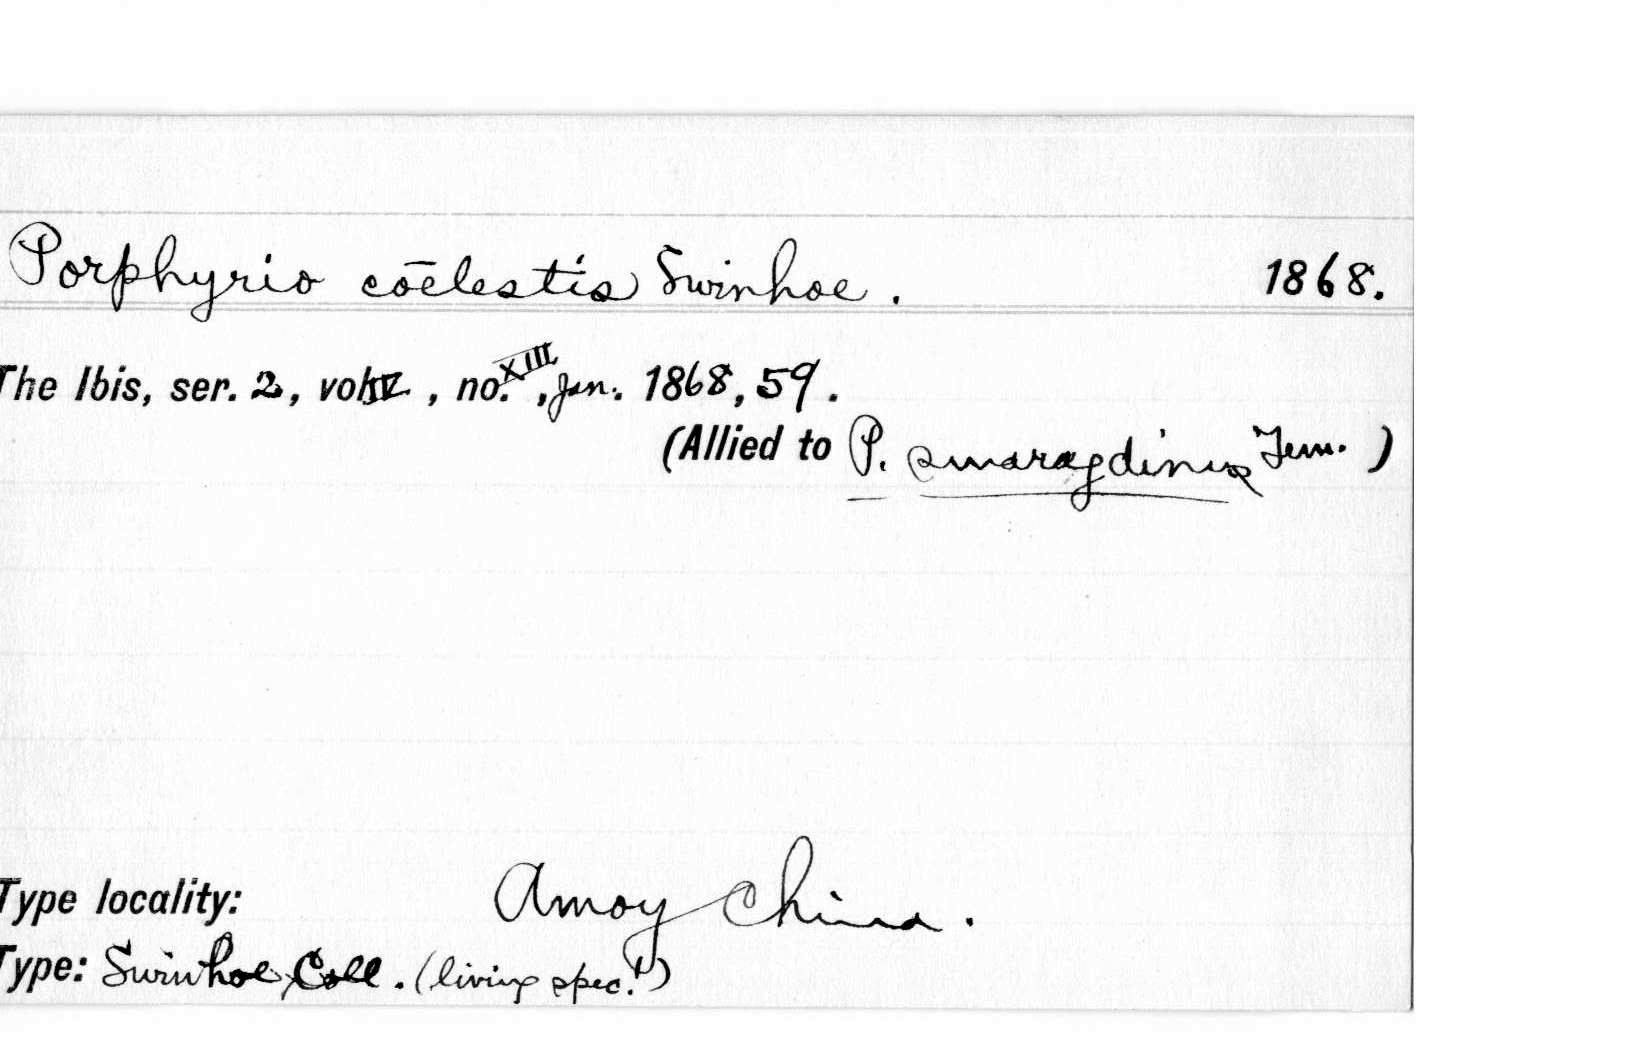 Porphyrio cōelestis Swinhoe. 1868.
The Ibis, ser. 2, vol. IV, no. XIII, Jan. 1868, 59.
(Allied to P. smaragdinus Tem.)
Type locality: Amoy China.
Type: Swinhoe Coll. (living spec.!)